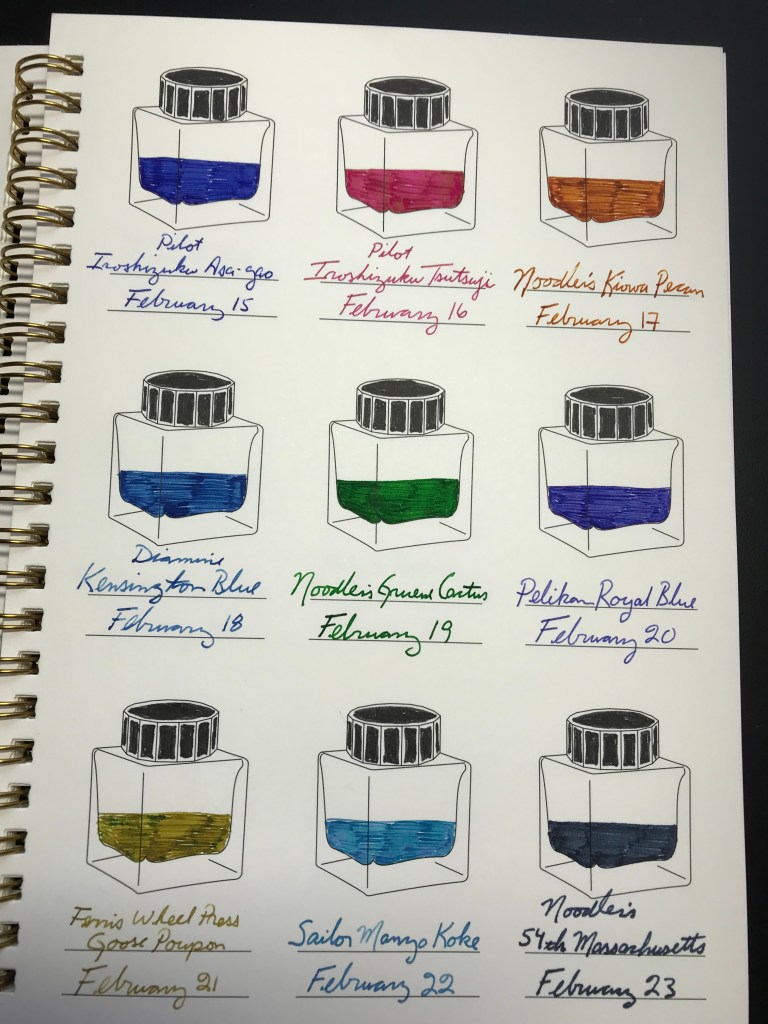 Pilot
Iroshizuku Asa-gao
February 15
Pilot
Iroshizuku Tsutsuji
February 16
Noodler's Kiowa Pecan
February 17
Diamine
Kensington Blue
February 18
Noodler's Gruene Cactus
February 19
Pelikan Royal Blue
February 20
Ferris Wheel Press
Goose Poupon
February 21
Sailor Manyo Koke
February 22
Noodler's
54th Massachusetts
February 23